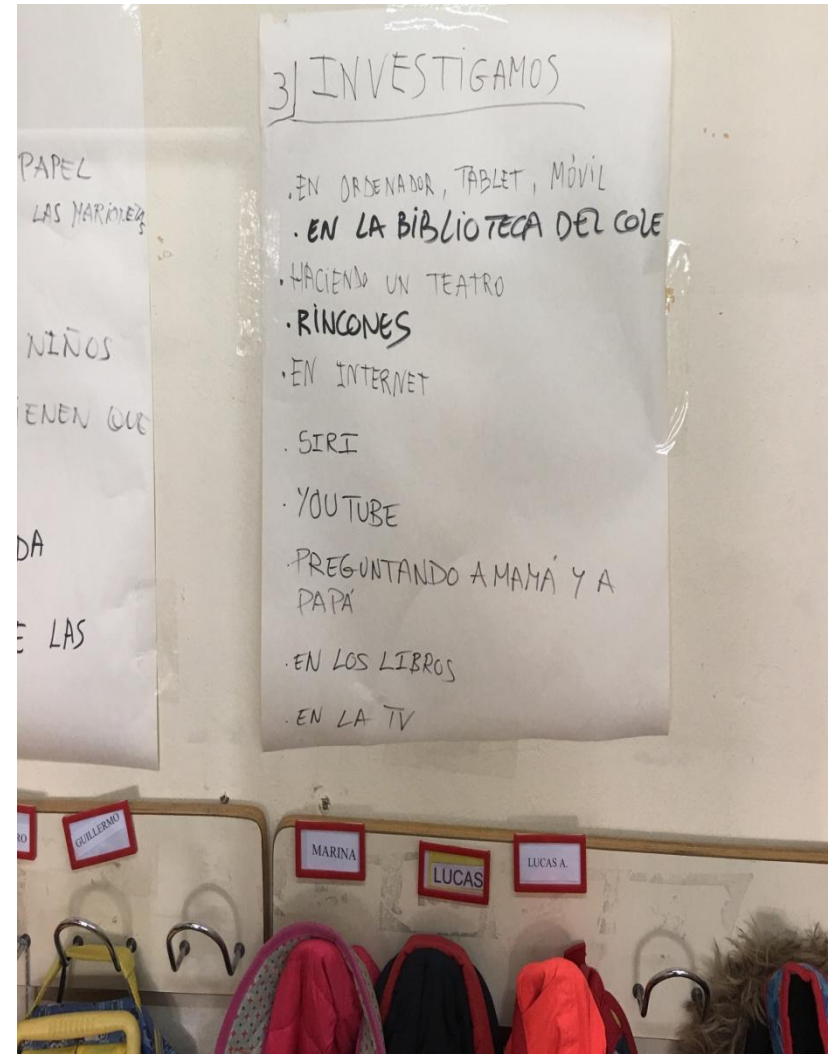 PAPEL
LAS MARIONETAS
NIÑOS
IENEN QUE
DA
E LAS
3) INVESTIGAMOS
. EN ORDENADOR, TABLET, MÓVIL
. EN LA BIBLIOTECA DEL COLE
. HACIENDO UN TEATRO
. RINCONES
. EN INTERNET
. SIRI
. YOUTUBE
. PREGUNTANDO A MAMÁ Y A
PAPÁ
. EN LOS LIBROS
. EN LA TV
RO
GUILLERMO
MARINA
LUCAS
LUCAS A.